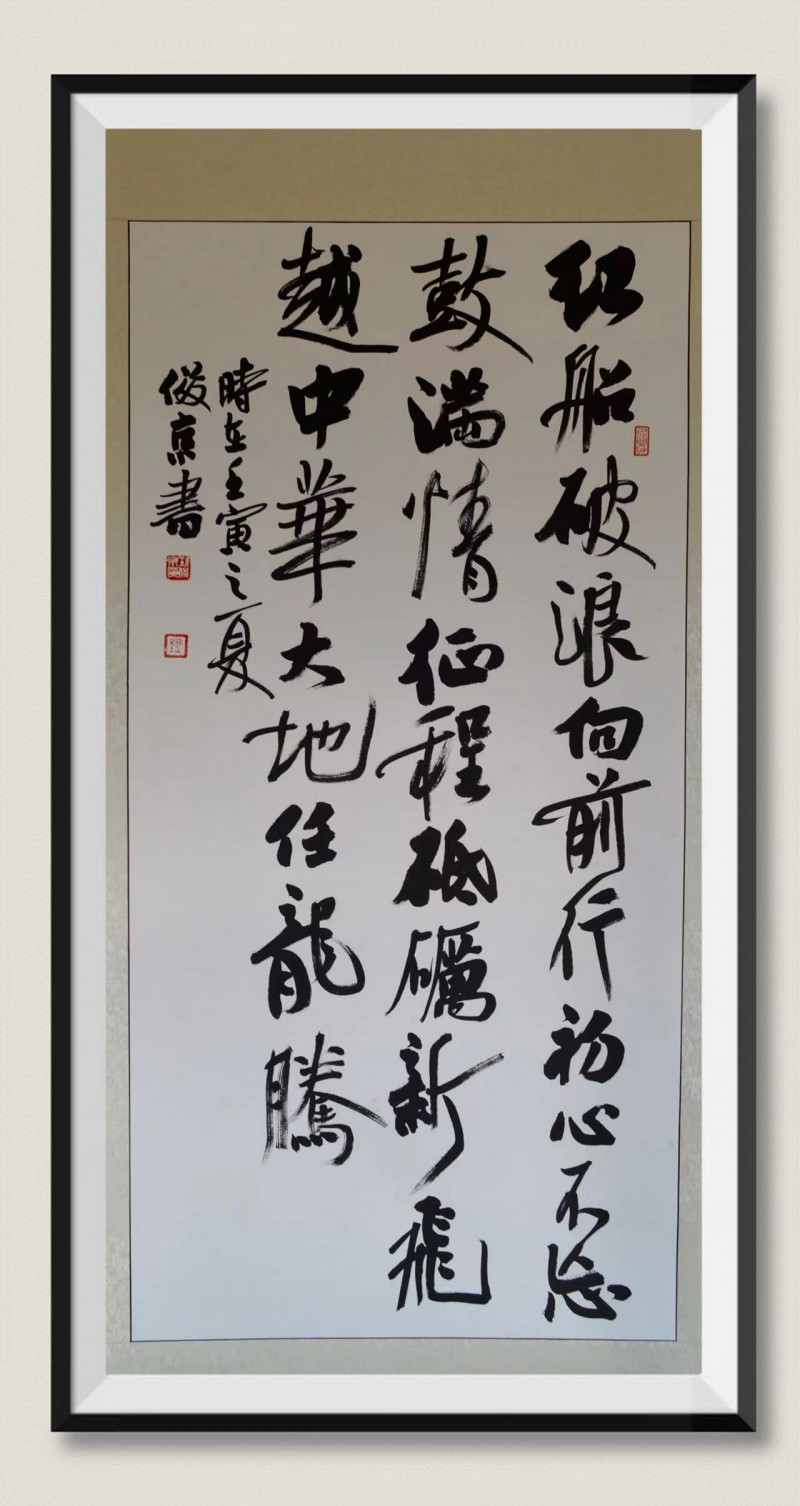 红船破浪向前行初心不忘
鼓满情征程砥礪新飛
越中華大地任龍騰
時在壬寅之夏
俊京書